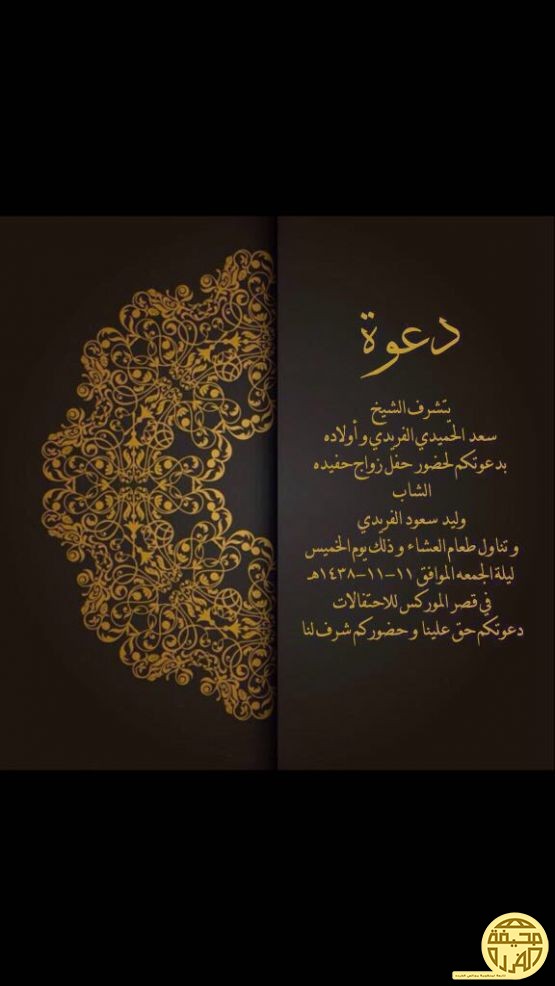 دعوة
يتشرف الشيخ
سعد الحميدي الفريدي و أولاده
بدعوتكم لحضور حفل زواج حفيده
الشاب
وليد سعود الفريدي
و تناول طعام العشاء و ذلك يوم الخميس
ليلة الجمعه الموافق ١١-١١-١٤٣٨هـ
في قصر الموركس للاحتفالات
دعوتكم حق علينا و حضوركم شرف لنا
صحيفة